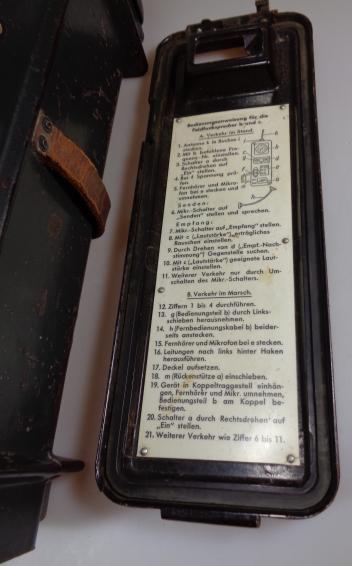 Bedienungsanweisung für die
Feldfunksprecher b und c.
A. Verkehr im Stand.
1. Antenne k in Buchse i
stecken.
2. Mit b befohlene Fre-
quenz-Nr. einstellen.
3. Schalter a durch
Rechtsdrehen auf
„Ein" stellen.
4. Bei f Spannung prü-
fen.
5. Fernhörer und Mikro-
fon bei e stecken und
umnehmen.
Senden:
6. Mikr.-Schalter auf
„Senden" stellen und sprechen.
Empfang:
7. Mikr.-Schalter auf „Empfang" stellen.
8. Mit c („Lautstärke") erträgliches
Rauschen einstellen.
9. Durch Drehen von d („Empf.-Nach-
stimmung") Gegenstelle suchen.
10. Mit c („Lautstärke") geeignete Laut-
stärke einstellen.
11. Weiterer Verkehr nur durch Um-
schalten des Mikr.-Schalters.
B. Verkehr im Marsch.
12. Ziffern 1 bis 4 durchführen.
13. g (Bedienungsteil b) durch Links-
schieben herausnehmen.
14. h (Fernbedienungskabel b) beider-
seits anstecken.
15. Fernhörer und Mikrofon bei e stecken.
16. Leitungen nach links hinter Haken
herausführen.
17. Deckel aufsetzen.
18. m (Rückenstütze a) einschieben.
19. Gerät in Koppeltraggestell einhän-
gen, Fernhörer und Mikr. umnehmen,
Bedienungsteil b am Koppel be-
festigen.
20. Schalter a durch Rechtsdrehen auf
„Ein" stellen.
21. Weiterer Verkehr wie Ziffer 6 bis 11.